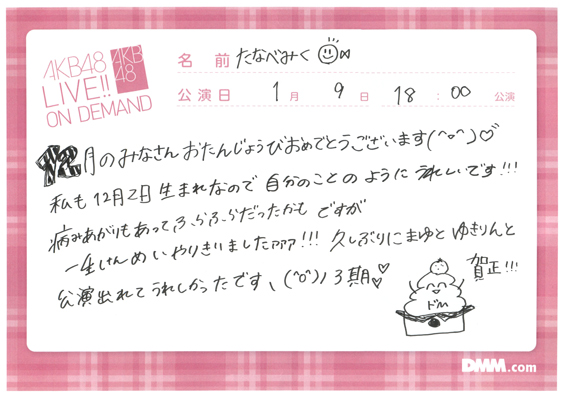 AKB48
LIVE!!
ON DEMAND
AKB
48
名前 たなべみく
公演日 1月 9日 18:00 公演
12月のみなさん おたんじょうびおめでとうございます(^o^)♡
私も12月2日生まれなので 自分のことのようにうれしいです!!!
病みあがりもあって ふらふらだったかも ですが
一生けんめいやりきりました!!! 久しぶりにまゆとゆきりんと
公演出れてうれしかったです、(^o^)ノ3期♡♡
賀正!!!
ドM
DMM.com